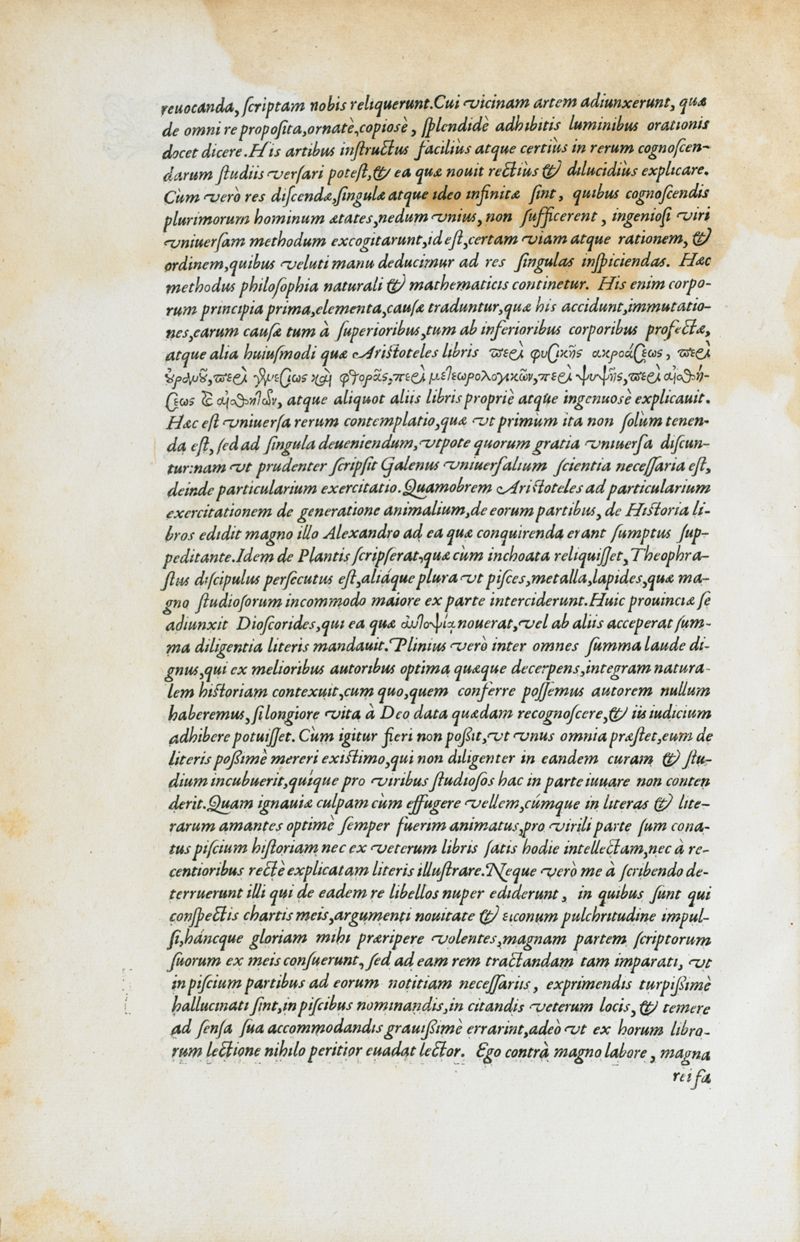 reuocanda, ſcriptam nobis reliquerunt. Cui vicinam artem adiunxerunt, quæ
de omni re propoſita, ornatè, copiosè, ſplendidè adhibitis luminibus orationis
docet dicere. His artibus inſtructus faciliùs atque certiùs in rerum cognoſcen-
darum ſtudiis verſari poteſt, & ea quæ nouit rectiùs & dilucidiùs explicare.
Cùm verò res diſcendæ, ſingulæ atque ideo infinitæ ſint, quibus cognoſcendis
plurimorum hominum ætates, nedum vnius, non ſufficerent, ingenioſi viri
vniuerſam methodum excogitarunt, id eſt, certam viam atque rationem, &
ordinem, quibus veluti manu deducimur ad res ſingulas inſpiciendas. Hæc
methodus philoſophia naturali & mathematicis continetur. His enim corpo-
rum principia prima, elementa, cauſæ traduntur, quæ his accidunt, immutatio-
nes, earum cauſæ tum à ſuperioribus, tum ab inferioribus corporibus profectæ,
atque alia huiuſmodi quæ Ariſtoteles libris περὶ φυσικῆς ακροάσεως, περὶ
οὐρανοῦ, περὶ γενέσεως καὶ φθορᾶς, περὶ μετεωρολογικῶν, περὶ ψυχῆς, περὶ αἰσθή-
σεως & αἰσθητῶν, atque aliquot aliis libris propriè atque ingenuosè explicauit.
Hæc eſt vniuerſa rerum contemplatio, quæ vt primum ita non ſolum tenen-
da eſt, ſed ad ſingula deueniendum, vtpote quorum gratia vniuerſa diſcun-
tur: nam vt prudenter ſcripſit Galenus vniuerſalium ſcientia neceſſaria eſt,
deinde particularium exercitatio. Quamobrem Ariſtoteles ad particularium
exercitationem de generatione animalium, de eorum partibus, de Hiſtoria li-
bros edidit magno illo Alexandro ad ea quæ conquirenda erant ſumptus ſup-
peditante. Idem de Plantis ſcripſerat, quæ cùm inchoata reliquiſſet, Theophra-
ſtus diſcipulus perſecutus eſt, aliáque plura vt piſces, metalla, lapides, quæ ma-
gno ſtudioſorum incommodo maiore ex parte interciderunt. Huic prouinciæ ſe
adiunxit Dioſcorides, qui ea quæ αὐτοψίᾳ nouerat, vel ab aliis acceperat ſum-
ma diligentia literis mandauit. Plinius verò inter omnes ſumma laude di-
gnus, qui ex melioribus autoribus optima quæque decerpens, integram natura-
lem hiſtoriam contexuit, cum quo, quem conferre poſſemus autorem nullum
haberemus, ſi longiore vita à Deo data quædam recognoſcere, & iis iudicium
adhibere potuiſſet. Cùm igitur fieri non poßit, vt vnus omnia præſtet, eum de
literis poßimè mereri exiſtimo, qui non diligenter in eandem curam & ſtu-
dium incubuerit, quíque pro viribus ſtudioſos hac in parte iuuare non conten
derit. Quam ignauiæ culpam cùm effugere vellem, cúmque in literas & lite-
rarum amantes optimè ſemper fuerim animatus, pro virili parte ſum cona-
tus piſcium hiſtoriam nec ex veterum libris ſatis hodie intellectam, nec à re-
centioribus rectè explicatam literis illuſtrare. Neque verò me à ſcribendo de-
terruerunt illi qui de eadem re libellos nuper ediderunt, in quibus ſunt qui
conſpectis chartis meis, argumenti nouitate & eiconum pulchritudine impul-
ſi, háncque gloriam mihi præripere volentes, magnam partem ſcriptorum
ſuorum ex meis conſuerunt, ſed ad eam rem tractandam tam imparati, vt
in piſcium partibus ad eorum notitiam neceſſariis, exprimendis turpißimè
hallucinati ſint, in piſcibus nominandis, in citandis veterum locis, & temere
ad ſenſa ſua accommodandis grauißimè errarint, adeò vt ex horum libro-
rum lectione nihilo peritior euadat lector. Ego contrà magno labore, magna
rei fa